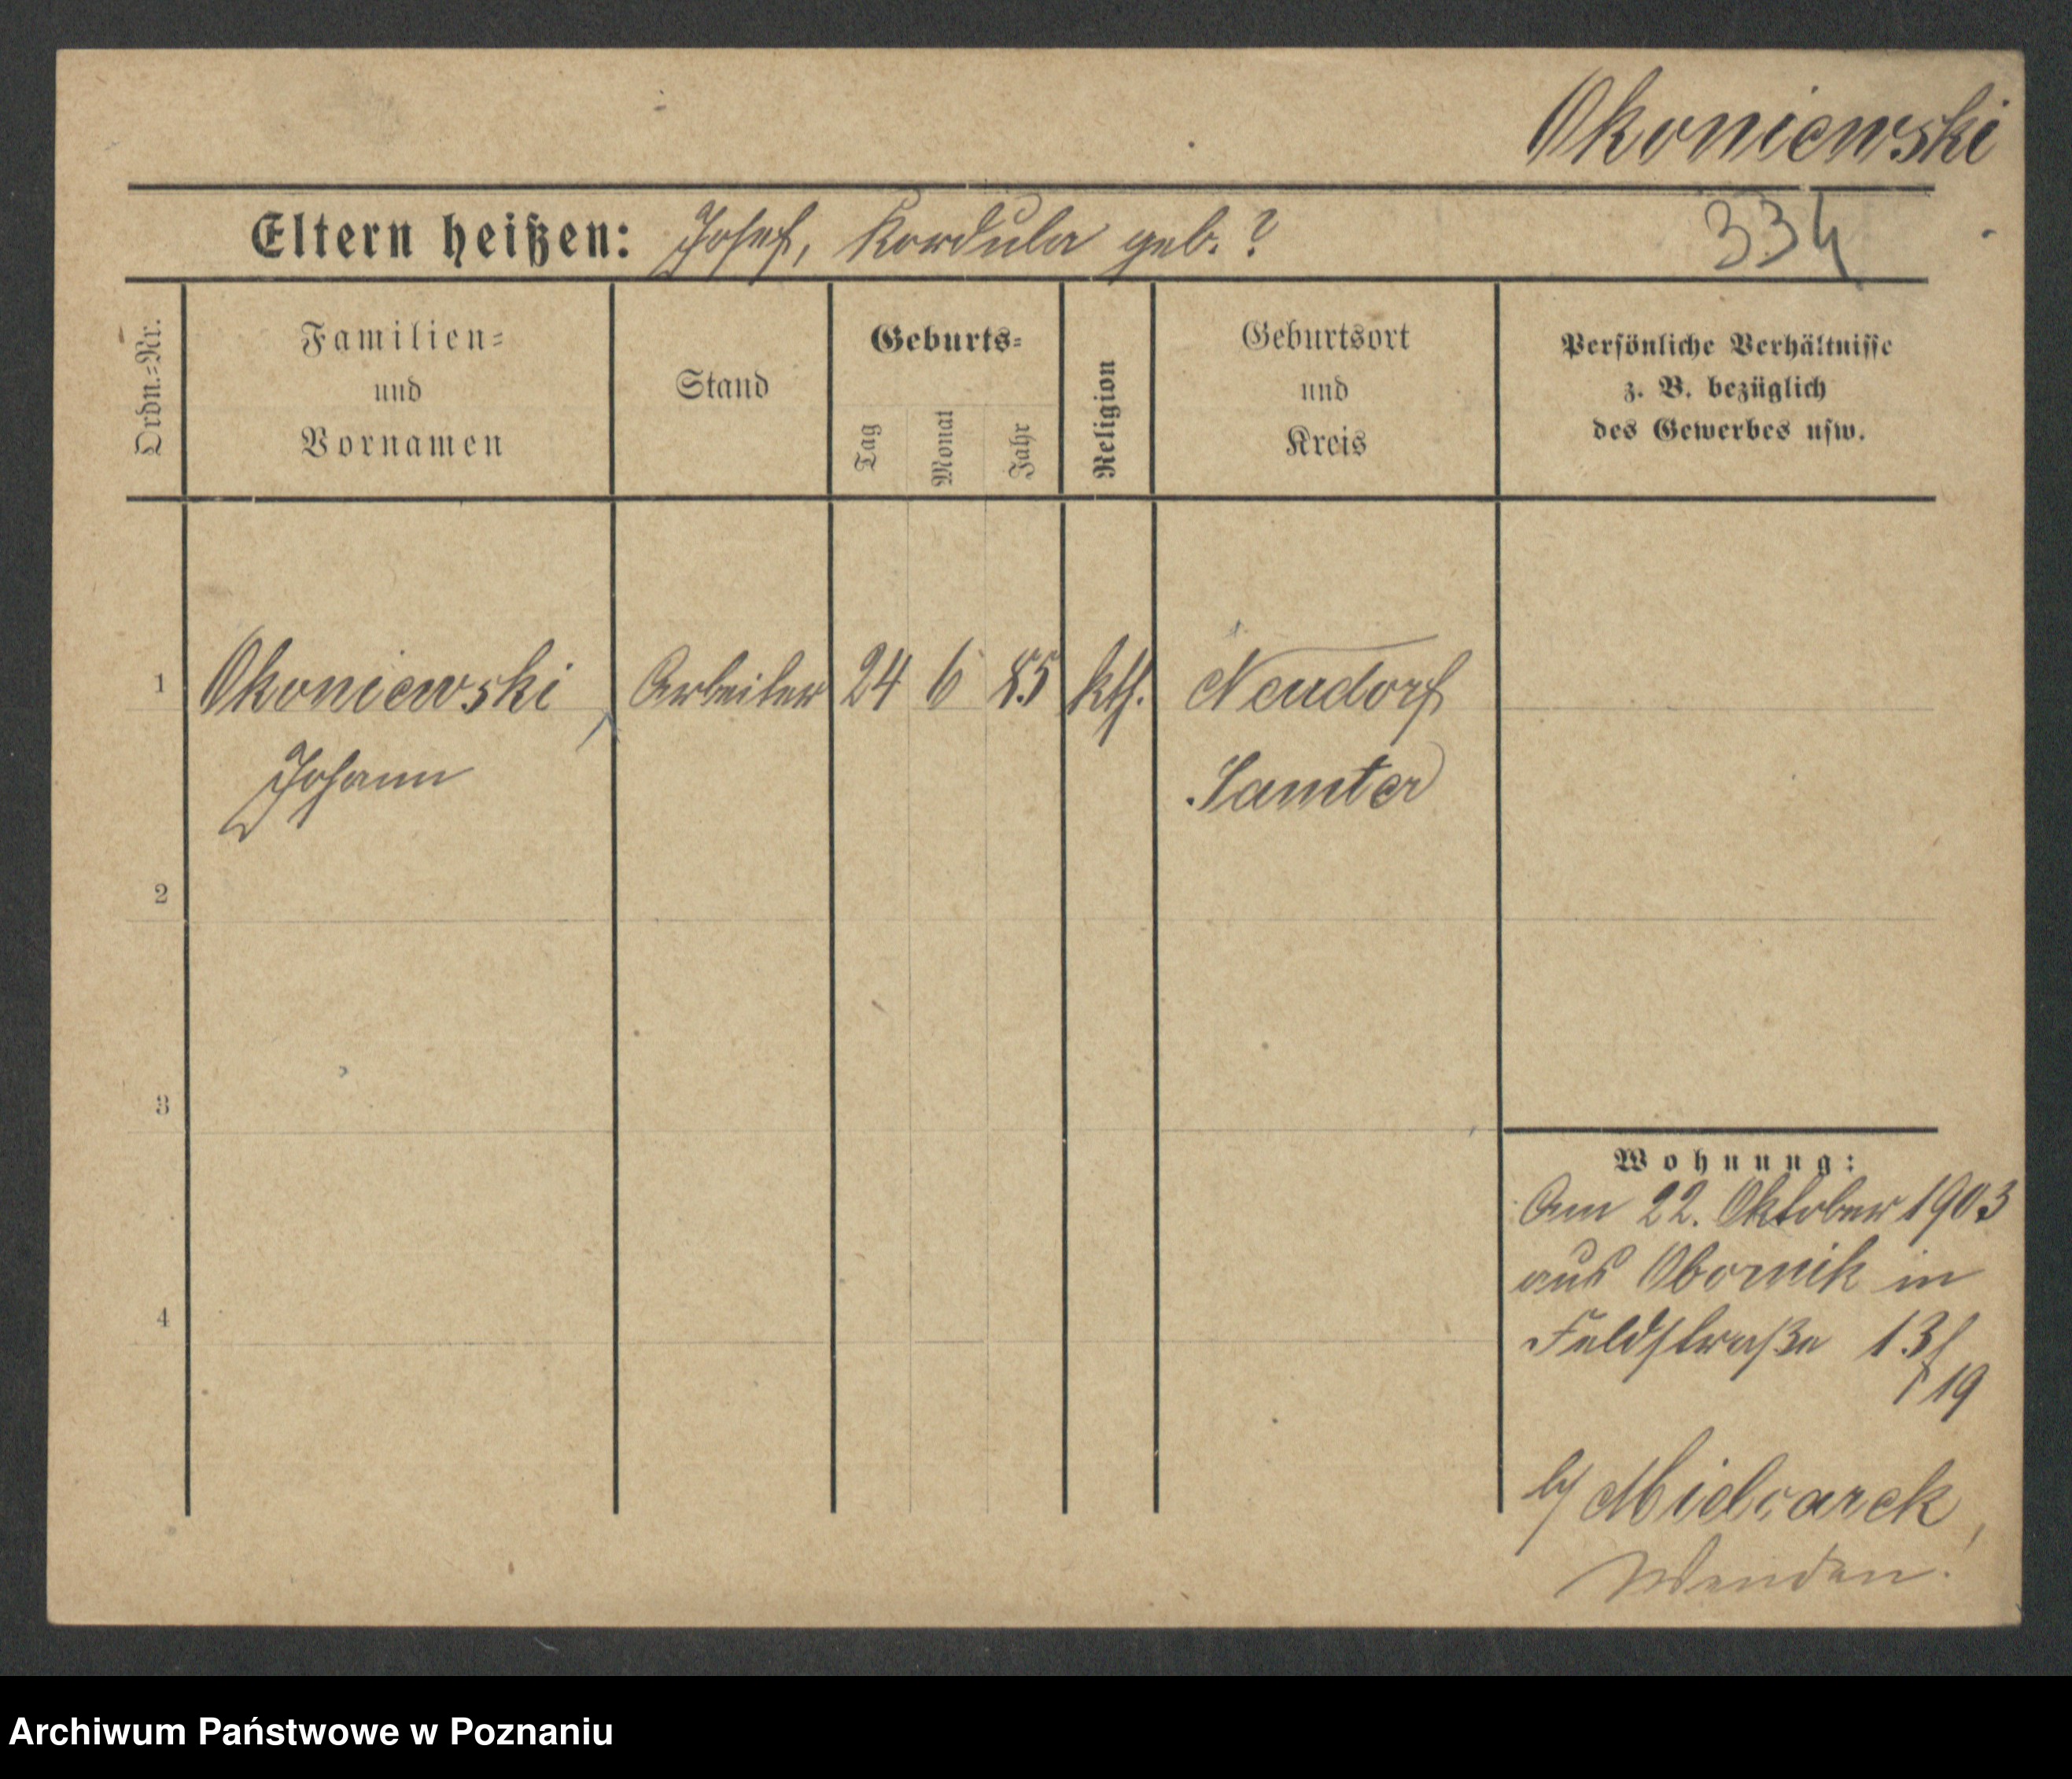 Okoniewski
Eltern heißen: Josef, Kordula geb. ?
334
Ordn.-Nr.
Familien-
und
Vornamen
Stand
Geburts-
Tag
Monat
Jahr
Religion
Geburtsort
und
Kreis
Persönliche Verhältnisse
z. B. bezüglich
des Gewerbes usw.
1 Okoniewski Arbeiter 24 6 85 kth. Neudorf
Johann Samter
2
3
4
Wohnung:
Am 22. Oktober 1903
aus Obornik in
Feldstraße 13/
19
b/
Wenden!
Archiwum Państwowe w Poznaniu